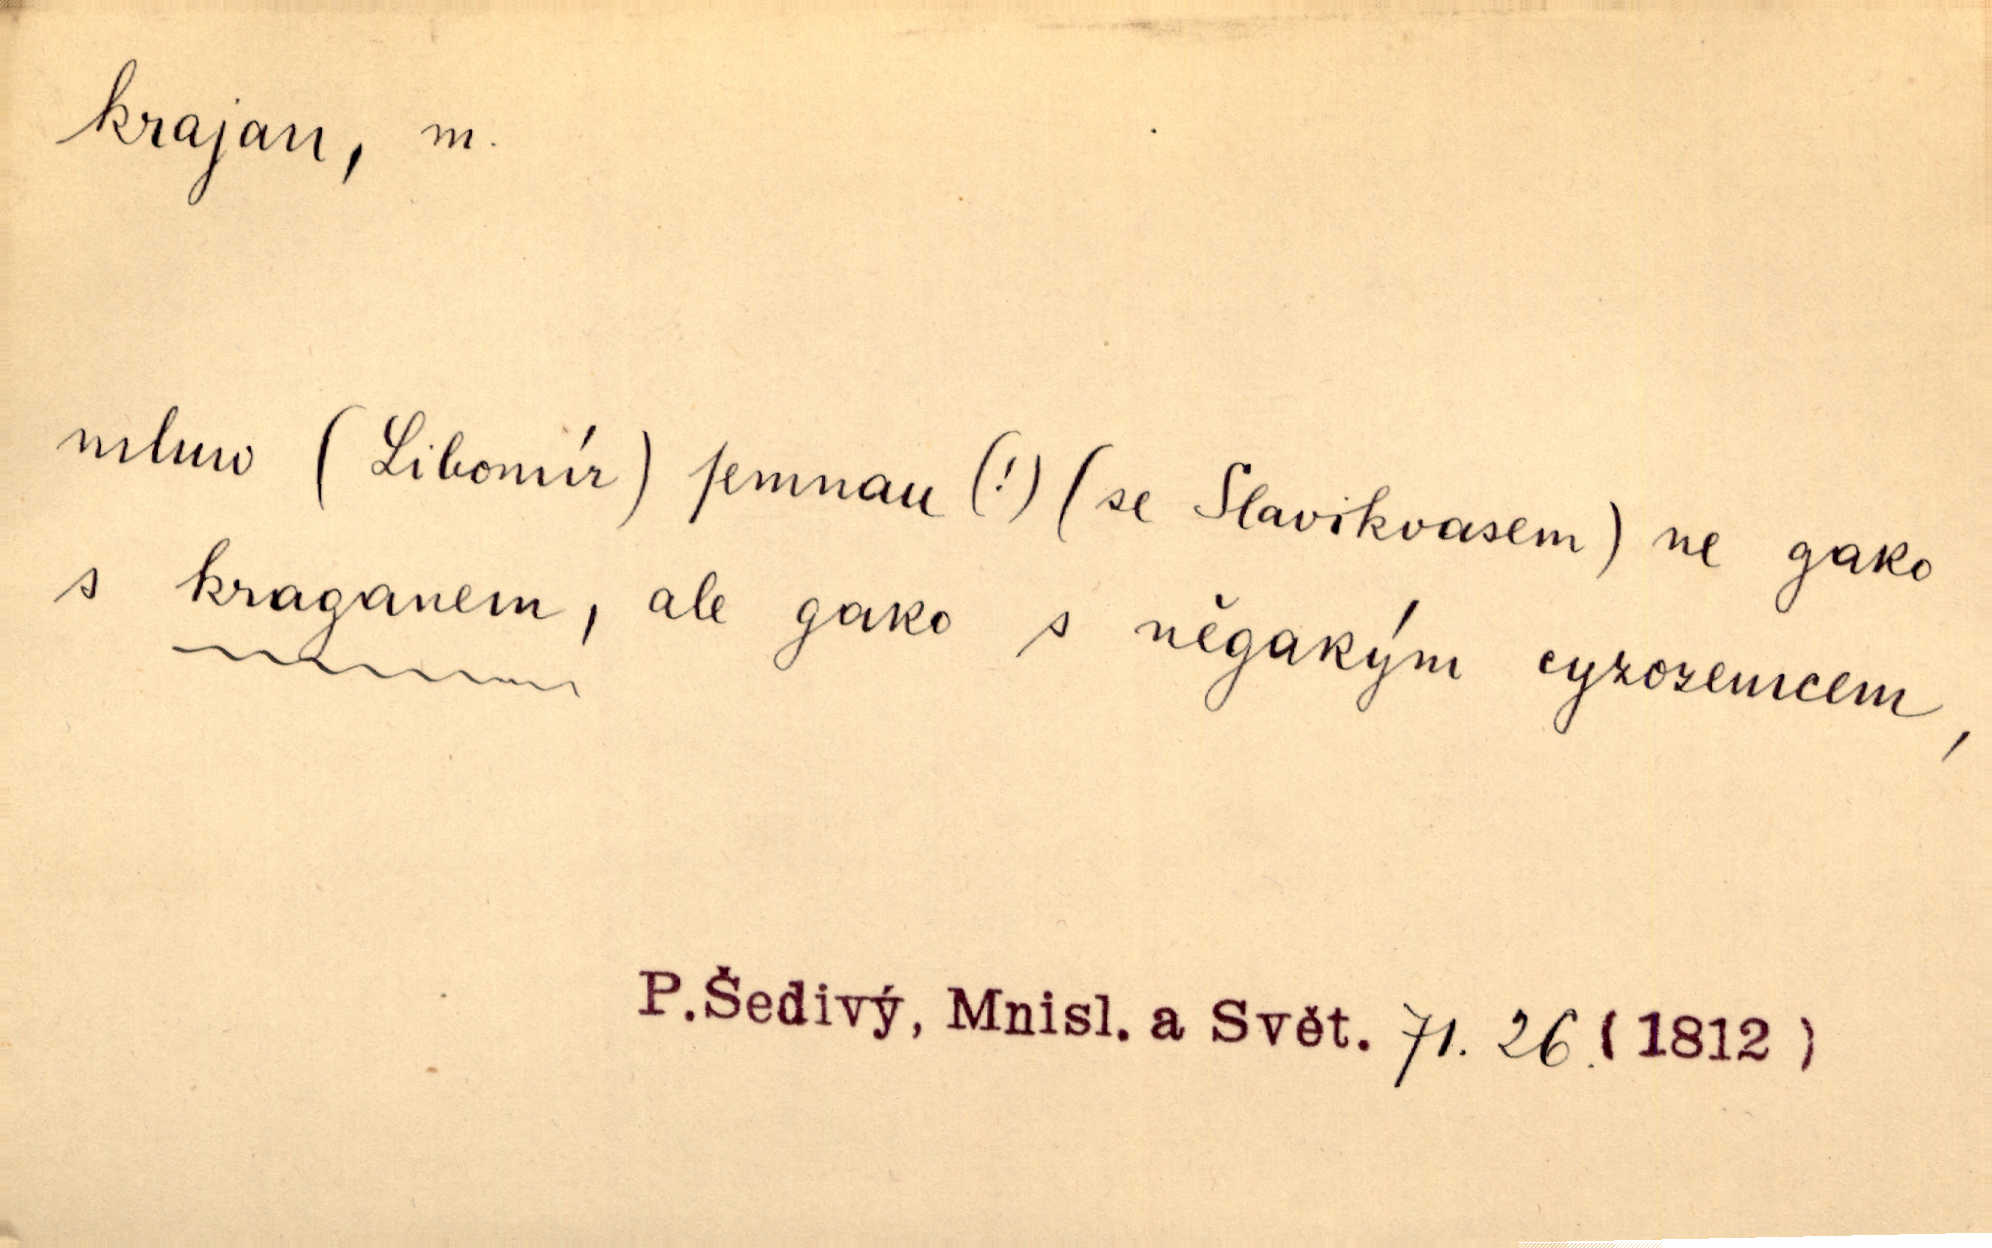 krajan, m.
mluw (Libomír) semnau (!) (se Slavikvasem) ne gako
s kraganem, ale gako s něgakým cyzozemcem,
P. Šedivý, Mnisl. a Svět. 71. 26. (1812)